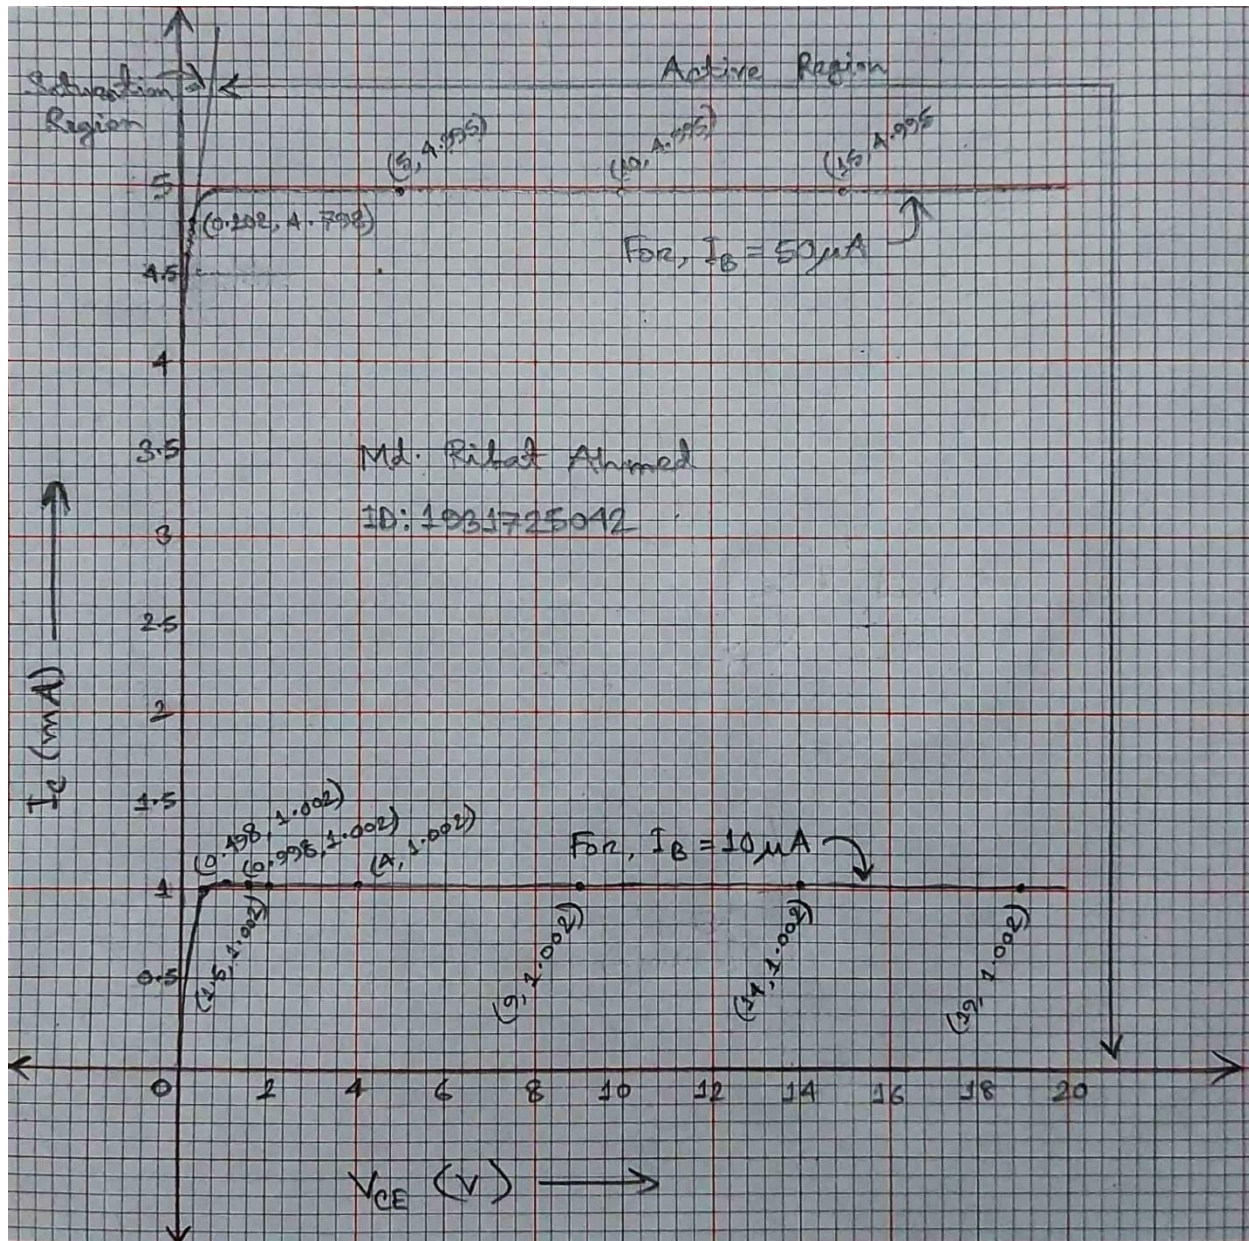 Saturation
Region
Active Region
(5, 4.995)
(10, 4.995)
(15, 4.995
5
(0.202, 4.798)
For, IB = 50μA
4.5
4
3.5
Md. Rifat Ahmed
ID: 1931725042
3
2.5
2
Ic (mA)
1.5
(0.498, 1.002)
(0.998, 1.002)
(4, 1.002)
For, IB = 10μA
1
(1.5, 1.002)
(9, 1.002)
(14, 1.002)
(19, 1.002)
0.5
0 2 4 6 8 10 12 14 16 18 20
VCE (V)